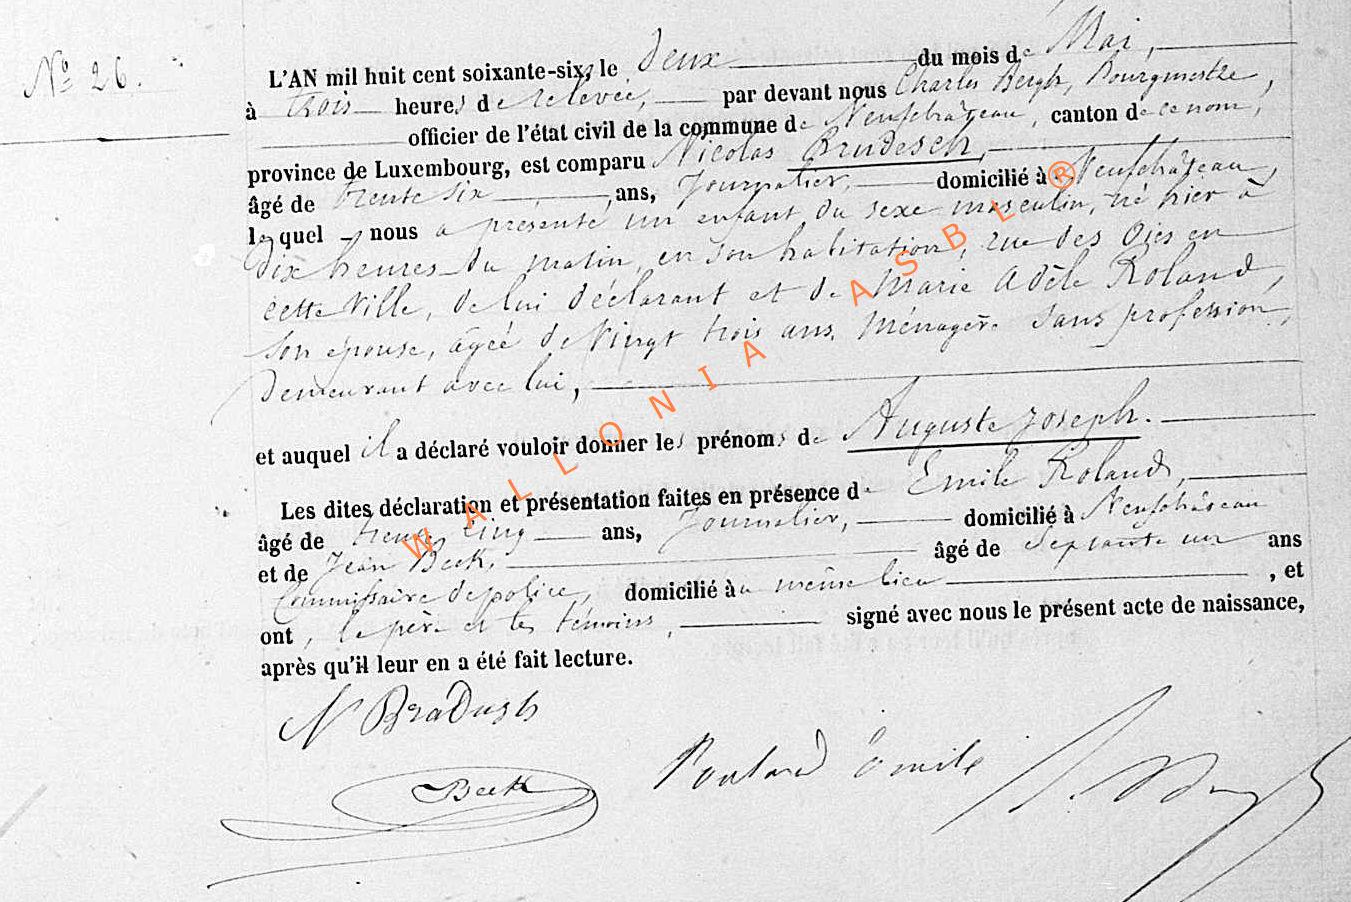 N° 26.
L'AN mil huit cent soixante-six, le deux du mois de Mai,
à trois heures de relevée, par devant nous Charles Bergh, Bourgmestre,
officier de l'état civil de la commune de Neufchâteau, canton de ce nom,
province de Luxembourg, est comparu Nicolas Brudesch,
âgé de trente six ans, Journalier, domicilié à Neufchâteau,
lequel nous a présenté un enfant du sexe masculin, né hier à
dix heures du matin, en son habitation, rue des Oies en
cette ville, de lui déclarant et de Marie Adèle Roland,
son épouse, âgée de vingt trois ans, Ménagère sans profession,
demeurant avec lui,
et auquel il a déclaré vouloir donner les prénoms de Auguste Joseph.
Les dites déclaration et présentation faites en présence de Emile Roland,
âgé de trente cinq ans, Journalier, domicilié à Neufchâteau
et de Jean Beck, âgé de septante un ans
Commissaire de police, domicilié au même lieu, et
ont, le père et les témoins, signé avec nous le présent acte de naissance,
après qu'il leur en a été fait lecture.
N Bradusch
Roulard Emile
Beck
WALLONIA ASBL ®